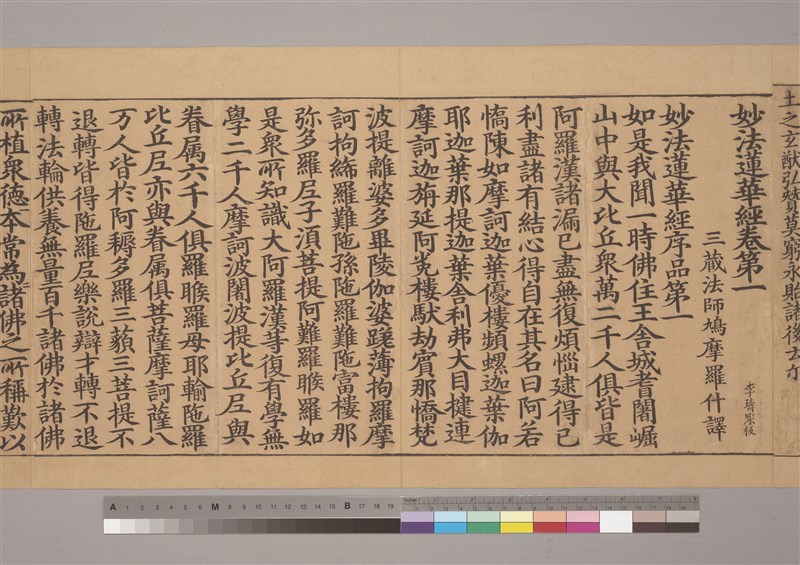 土之玄猷弘贊莫窮永貽諸後古尒
妙法蓮華經卷第一
三藏法師鳩摩羅什譯
妙法蓮華經序品第一
如是我聞一時佛住王舍城耆闍崛
山中與大比丘衆萬二千人俱皆是
阿羅漢諸漏已盡無復煩惱逮得己
利盡諸有結心得自在其名曰阿若
憍陳如摩訶迦葉優樓頻螺迦葉伽
耶迦葉那提迦葉舍利弗大目揵連
摩訶迦旃延阿㝹樓馱劫賓那憍梵
波提離婆多畢陵伽婆蹉薄拘羅摩
訶拘絺羅難陁孫陁羅難陁富樓那
弥多羅尼子湏菩提阿難羅睺羅如
是衆所知識大阿羅漢等復有學無
學二千人摩訶波闍波提比丘尼與
眷属六千人俱羅睺羅母耶輸陁羅
比丘尼亦與眷属俱菩薩摩訶薩八
万人皆於阿耨多羅三藐三菩提不
退轉皆得陁羅尼樂說辯才轉不退
轉法輪供養無量百千諸佛於諸佛
所植衆德本常為諸佛之所稱歎以
A 1 2 3 4 5 6 M 8 9 10 11 12 13 14 15 B 17 18 19